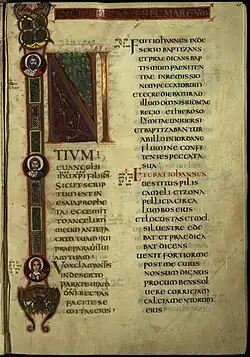 TIUM:
EUANGELII
IHU XPI FILII DI
SICUT SCRIP
TUM EST IN
ESAIA PROPHE
TA ECCE MITTO
ANGELUM
MEUM ANTE FA
CIEM TUAM QUI
PRAEPARABIT UI
AM TUAM
UOX CLAMANTIS
IN DESERTO
PARATE UIAM
DNI RECTAS
FACITE SE
MITAS EIUS
FUIT IOHANNES IN DE
SERTO BAPTIZANS
ET PRAEDICANS BAP
TISMUM PAENITEN
TIAE IN REMISSIO
NEM PECCATORUM
ET EGREDIEBATUR AD
ILLUM OMNIS IUDAEAE
REGIO ET HIEROSO
LYMITAE UNIUERSI
ET BAPTIZABANTUR
AB ILLO IN IORDANE
FLUMINE CONFI
TENTES PECCATA
SUA
ET ERAT IOHANNES
UESTITUS PILIS
CAMELI ET ZONA
PELLICIA CIRCA
LUMBOS EIUS
ET LOCUSTAS ET MEL
SILUESTRE EDE
BAT ET PRAEDICA
BAT DICENS
UENIT FORTIOR ME
POST ME CUIUS
NON SUM DIGNUS
PROCUMBENS SOL
UERE CORRIGIAM
CALCIAMENTORUM
EIUS